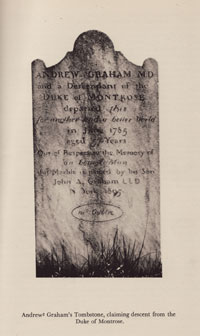 ANDREW GRAHAM M D
and a Descendant of the
DUKE of MONTROSE
departed this
for another and a better World
in 1785
aged Years
Out of Respect to the Memory of
an
this Marble is by his Son
John A. Graham L L D
in 1805
Andrew⁶ Graham's Tombstone, claiming descent from the
Duke of Montrose.